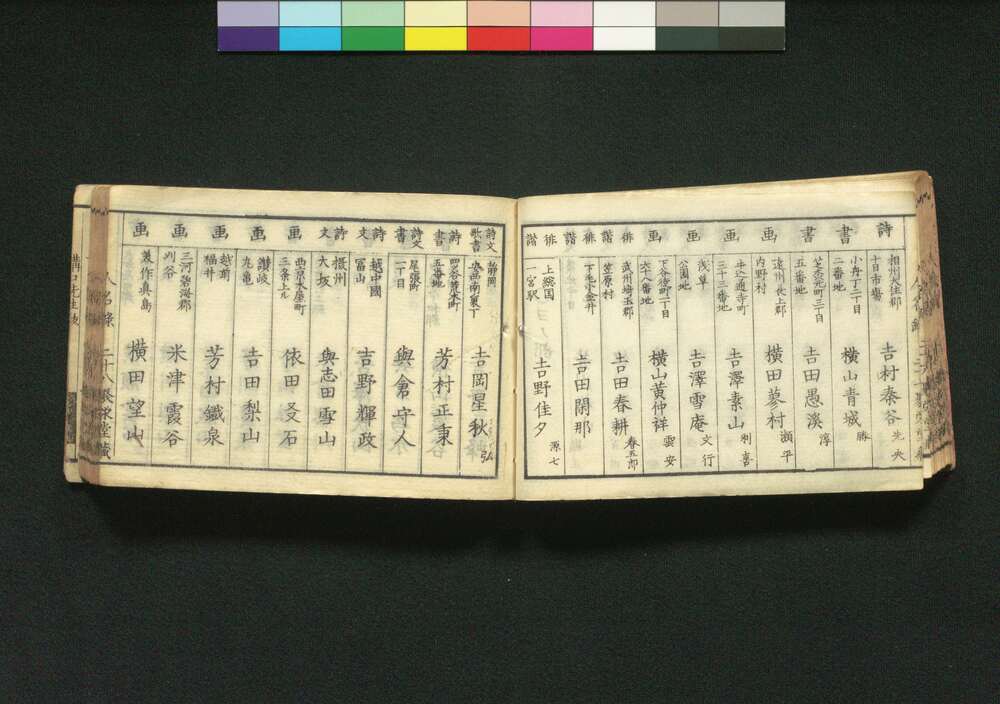 詩
相州大住郡
十日市場
吉村泰谷
先央
書
小舟丁二丁目
二番地
横山青城
勝
書
芝露元町二丁目
五番地
吉田愚溪
淳
画
遠州長上郡
内野村
横田蓼村
瀕平
画
牛込通寺町
三十三番地
吉澤素山
利喜
画
浅草
公園地
吉澤雪庵
文行
画
下谷仲町二丁目
六十八番地
横山黄仲祥
雲安
俳諧
武州埼玉郡
笠原村
吉田春耕
春五郎
俳諧
下毛小金井
吉田閑那
俳諧
上總国
一宮駅
吉野佳夕
源七
詩文
歌書
静岡
安西南裏丁
吉岡星秋
詩書
四谷荒木町
五番地
芳村正秉
詩文
書
尾張町
一丁目
與倉守人
詩文
越中國
冨山
吉野輝政
詩文
摂州
大坂
與志田雪山
画
西京木屋町
三条上ル
依田叟石
画
讃岐
丸亀
吉田梨山
画
越前
福井
芳村鐵泉
画
三河碧海郡
刈谷
米津霞谷
画
美作真島
横田望山
人名録
二十八